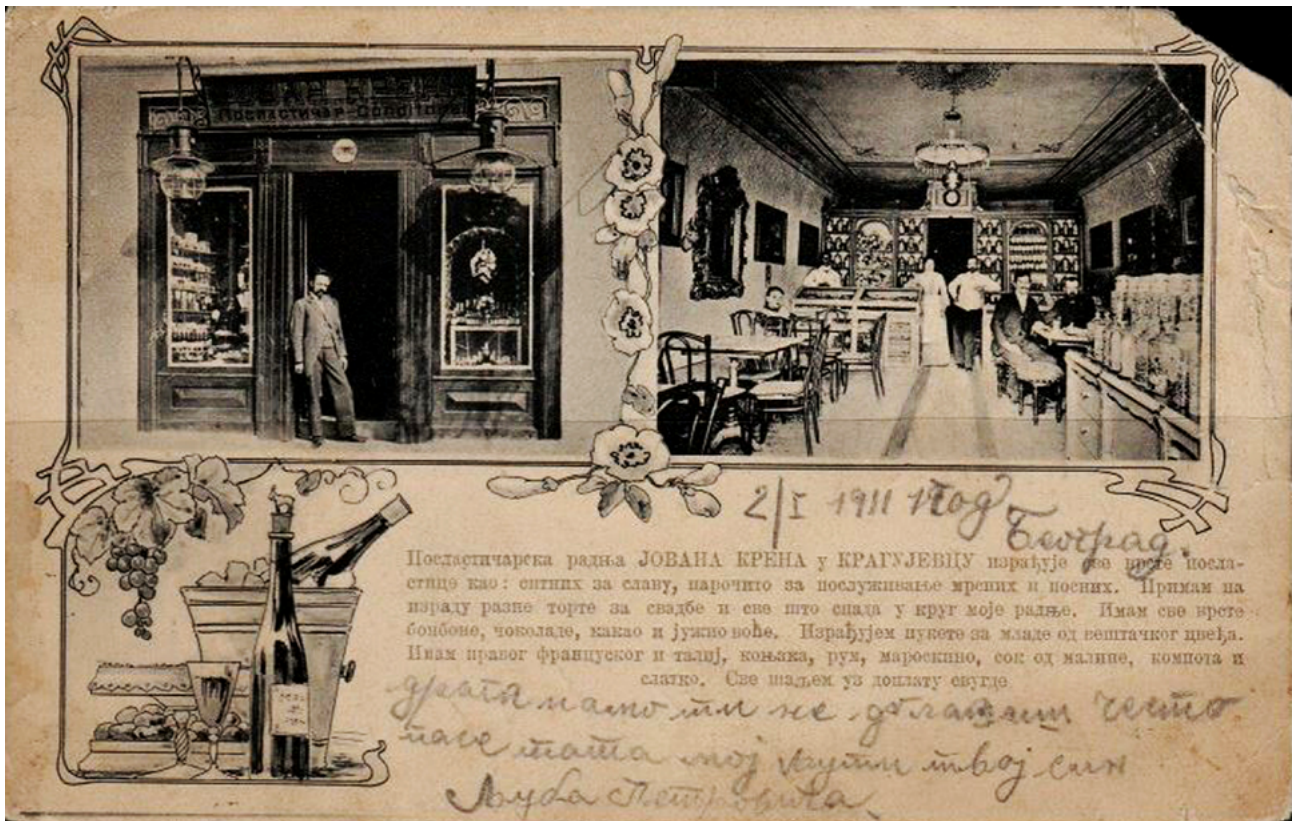 Посластичар-
2/I 1911 год
Београд.
Посластичарска радња ЈОВАНА КРЕНА у КРАГУЈЕВЦУ израђује све врсте посла-
стице као: ситних за славу, нарочито за послуживање мрсних и посних. Примам на
израду разне торте за свадбе и све што спада у круг моје радње. Имам све врсте
бонбоне, чоколаде, какао и јужно воће. Израђујем пукете за младе од вештачког цвећа.
Имам правог француског и талиј, коњака, рум, мароскино, сок од малине, компота и
слатко. Све шаљем уз доплату свугде
драга мамо ти не долазиш често
тата мој твој син
Љуба Петровића